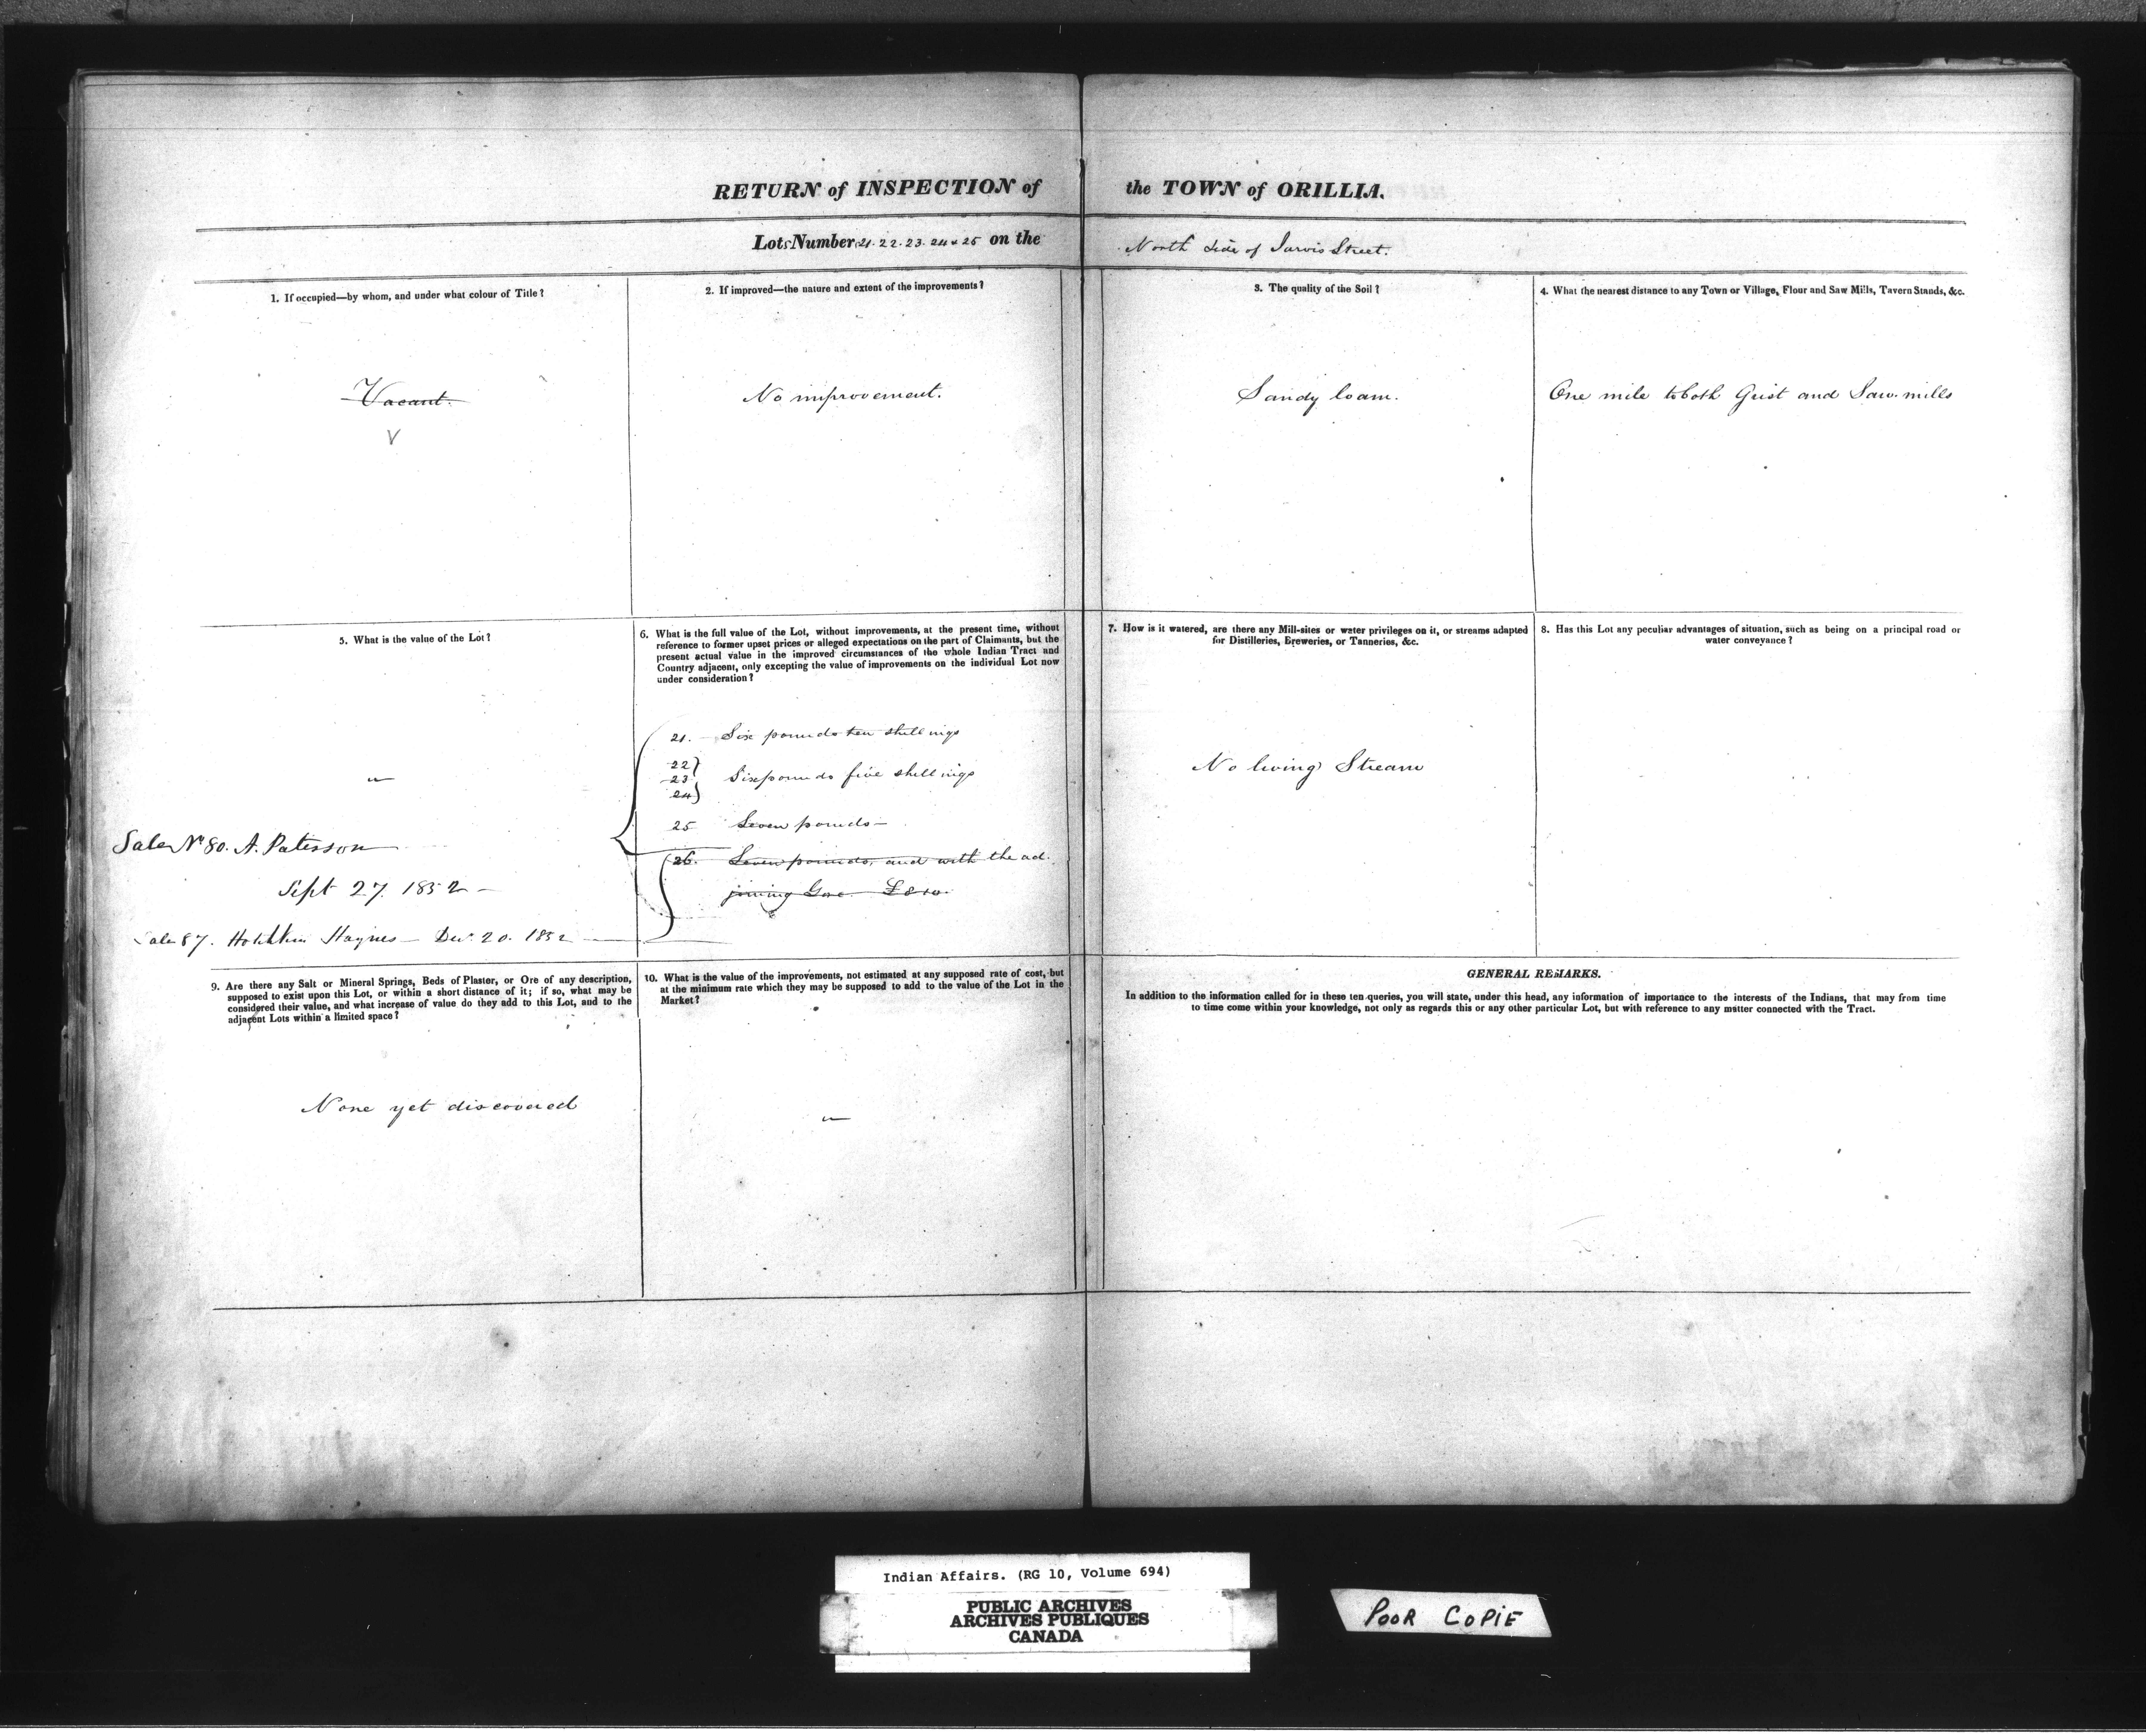 RETURN of INSPECTION of the TOWN of ORILLIA.
Lots Number 21. 22. 23. 24 & 25 on the North Side of Jarvis Street.
1. If occupied—by whom, and under what colour of Title?
Vacant.
V
2. If improved—the nature and extent of the improvements?
No improvement.
3. The quality of the Soil?
Sandy loam.
4. What the nearest distance to any Town or Village, Flour and Saw Mills, Tavern Stands, &c.
One mile to both Grist and Saw mills
5. What is the value of the Lot?
Sale No 80. A. Paterson
Sept 27. 1852
Sale 87. Haynes — Dec. 20. 1852
6. What is the full value of the Lot, without improvements, at the present time, without
reference to former upset prices or alleged expectations on the part of Claimants, but the
present actual value in the improved circumstances of the whole Indian Tract and
Country adjacent, only excepting the value of improvements on the individual Lot now
under consideration?
21. — Six pounds ten shillings
22
23 Six pounds five shillings
24
25 Seven pounds —
26. Seven pounds, and with the ad-
joining Gore £8
7. How is it watered, are there any Mill-sites or water privileges on it, or streams adapted
for Distilleries, Breweries, or Tanneries, &c.
No living Stream
8. Has this Lot any peculiar advantages of situation, such as being on a principal road or
water conveyance?
9. Are there any Salt or Mineral Springs, Beds of Plaster, or Ore of any description,
supposed to exist upon this Lot, or within a short distance of it; if so, what may be
considered their value, and what increase of value do they add to this Lot, and to the
adjacent Lots within a limited space?
None yet discovered
10. What is the value of the improvements, not estimated at any supposed rate of cost, but
at the minimum rate which they may be supposed to add to the value of the Lot in the
Market?
GENERAL REMARKS.
In addition to the information called for in these ten queries, you will state, under this head, any information of importance to the interests of the Indians, that may from time
to time come within your knowledge, not only as regards this or any other particular Lot, but with reference to any matter connected with the Tract.
Indian Affairs. (RG 10, Volume 694)
PUBLIC ARCHIVES
ARCHIVES PUBLIQUES
CANADA
POOR COPIE